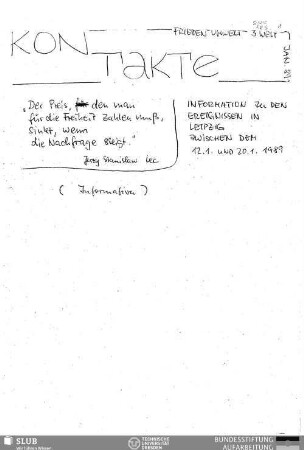 FRIEDEN - UMWELT - 3. WELT
JAN. 89
KONTAKTE
„Der Preis, den man
für die Freiheit zahlen muß,
sinkt, wenn
die Nachfrage steigt."
Jerzy Stanislaw Lec
INFORMATION ZU DEN
EREIGNISSEN IN
LEIPZIG
ZWISCHEN DEM
12.1. UND 20.1. 1989
( Information )
SLUB
Wir führen Wissen.
TECHNISCHE
UNIVERSITÄT
DRESDEN
BUNDESSTIFTUNG
AUFARBEITUNG